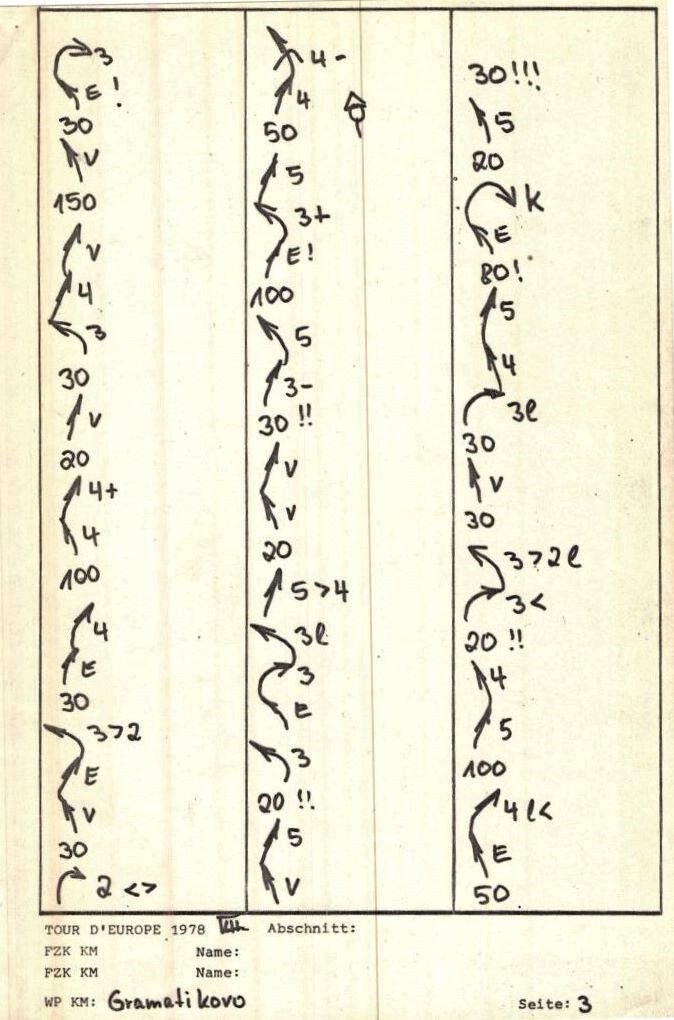 3
E !
30
V
150
V
4
3
30
V
20
4+
4
100
4
E
30
3>2
E
V
30
2 <>
4 -
4
50
5
3+
E!
100
5
3-
30 !!
V
V
20
5>4
3l
3
E
3
20 !!
5
V
30!!!
5
20
K
E
80!
5
4
3l
30
V
30
3>2l
3<
20 !!
4
5
100
4l<
E
50
TOUR D'EUROPE 1978 VII Abschnitt:
FZK KM Name:
FZK KM Name:
WP KM: Gramatikovo Seite: 3